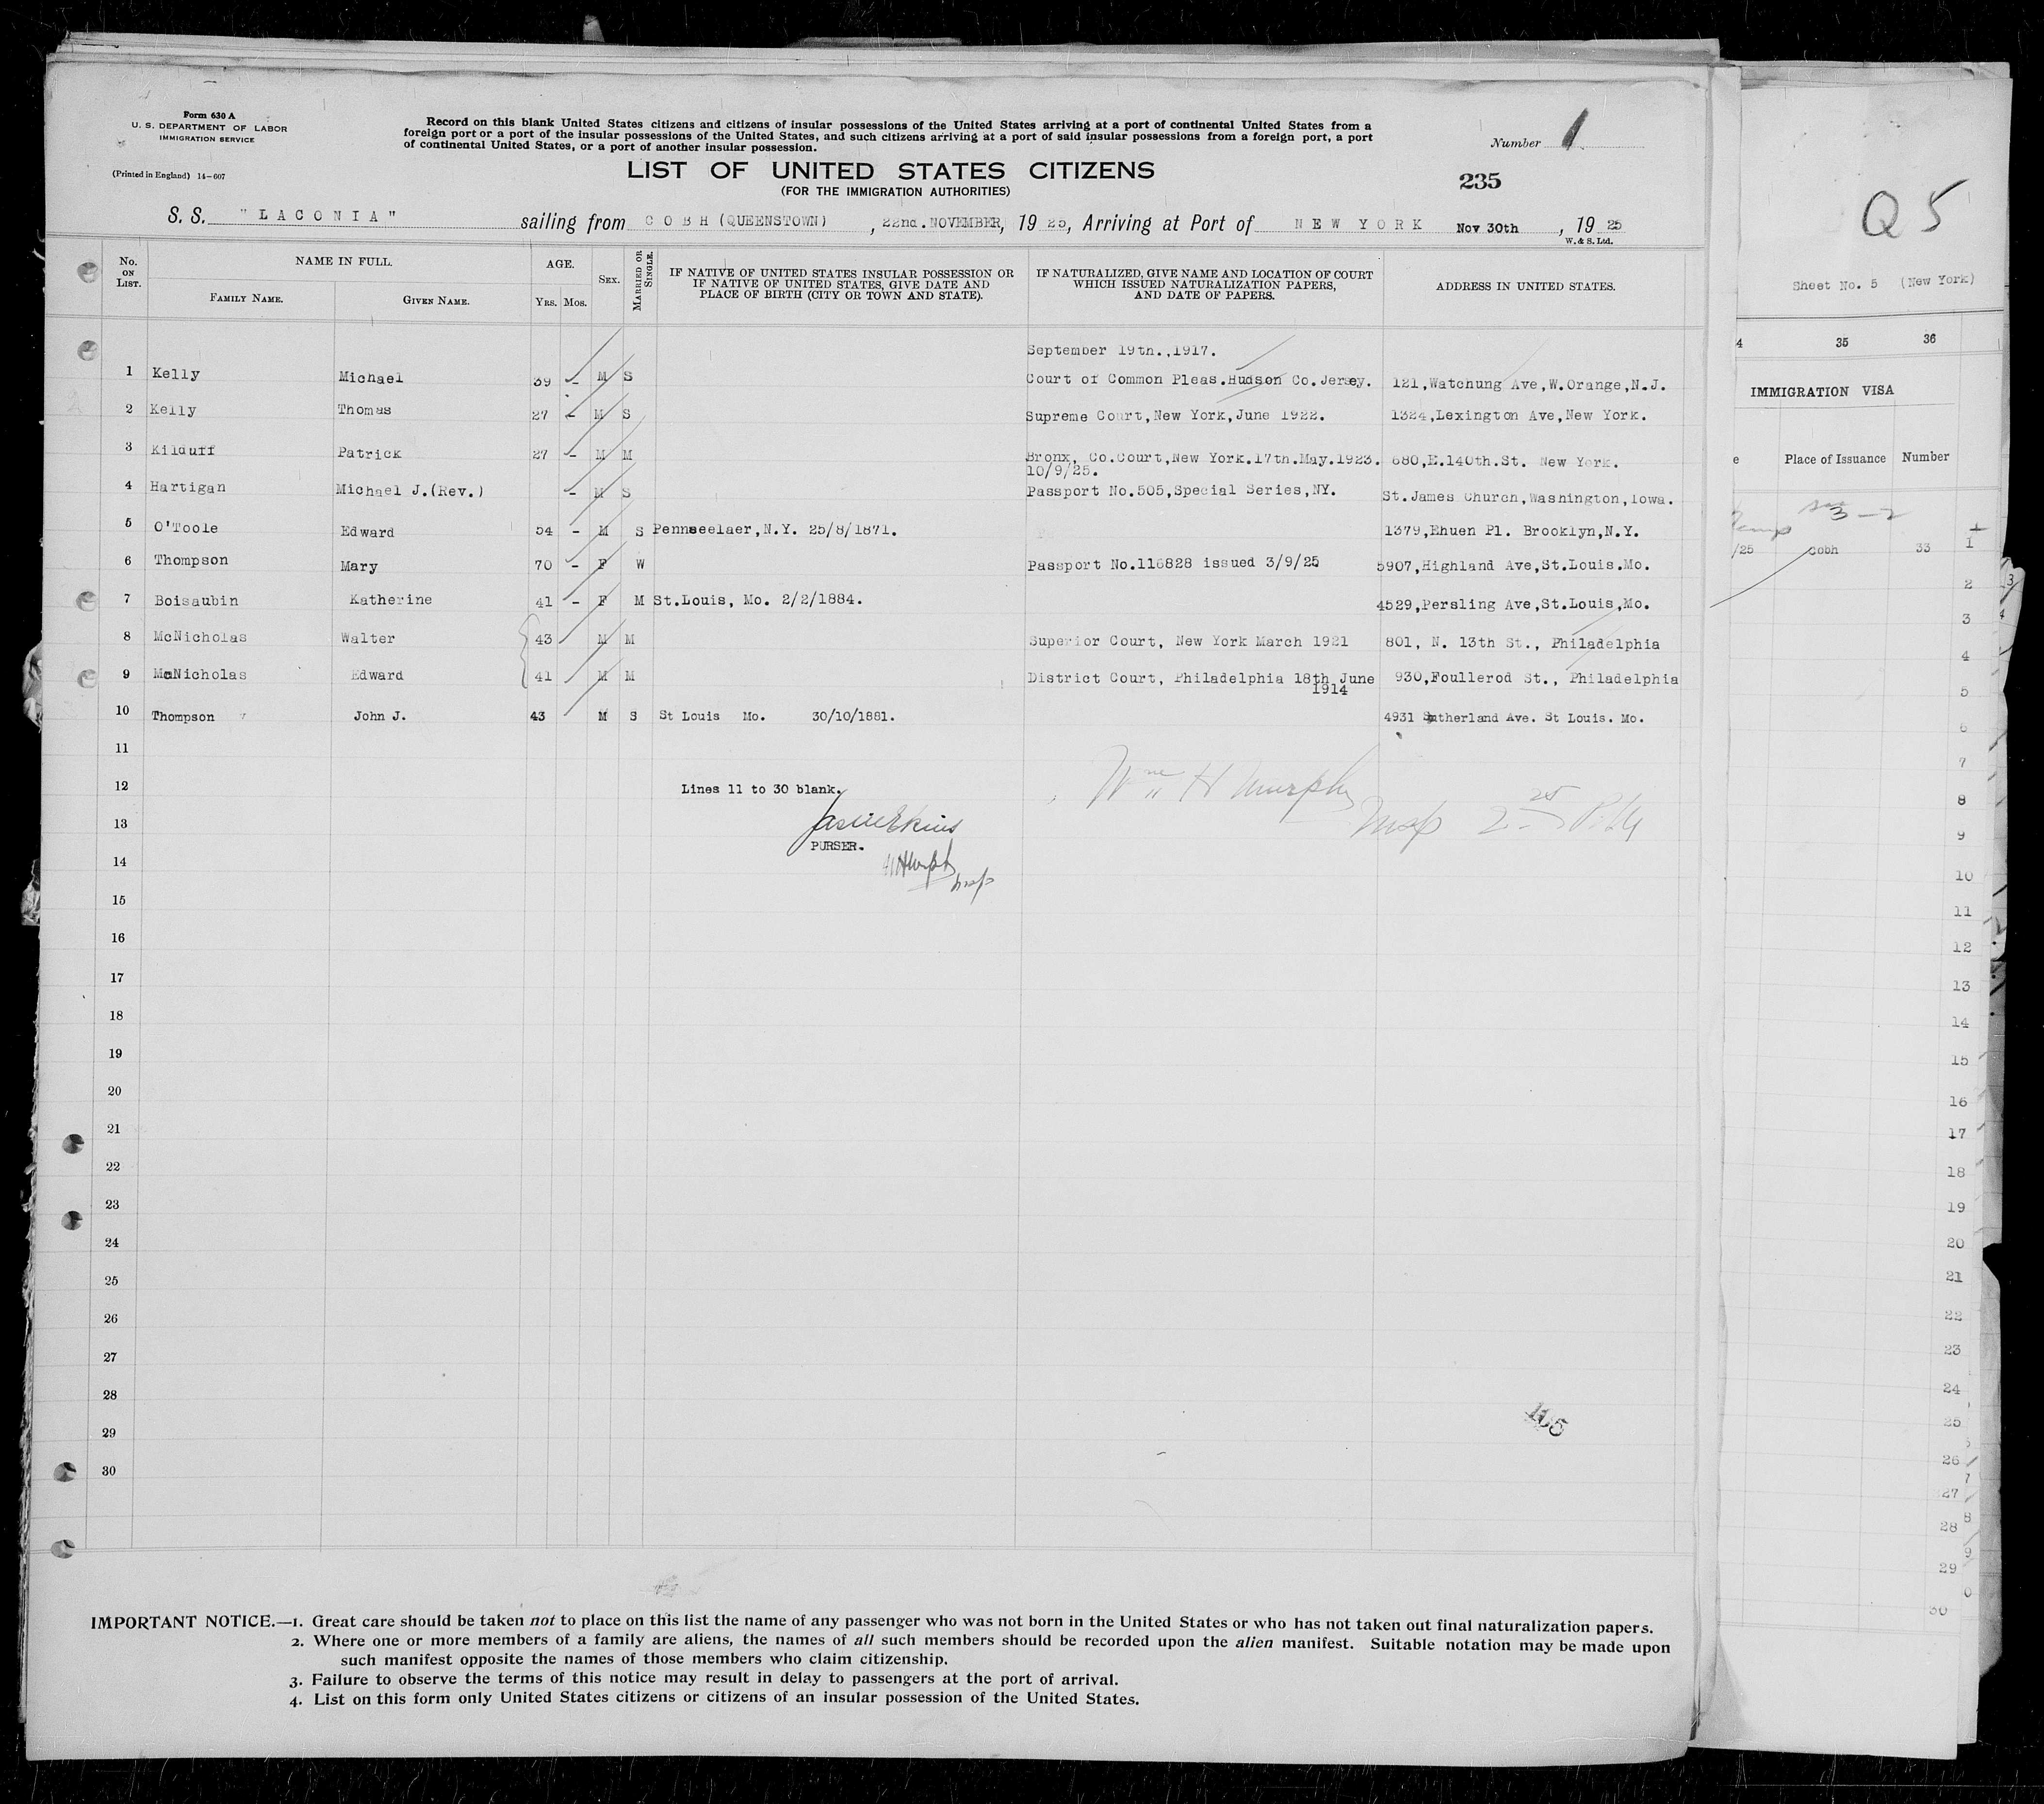 Form 630 A
U. S. DEPARTMENT OF LABOR
IMMIGRATION SERVICE
(Printed in England) 14-607
Record on this blank United States citizens and citizens of insular possessions of the United States arriving at a port of continental United States from a
foreign port or a port of the insular possessions of the United States, and such citizens arriving at a port of said insular possessions from a foreign port, a port
of continental United States, or a port of another insular possession.
Number 1
LIST OF UNITED STATES CITIZENS
(FOR THE IMMIGRATION AUTHORITIES)
235
S. S. "LACONIA" sailing from COBH (QUEENSTOWN), 22nd. NOVEMBER, 19 25, Arriving at Port of NEW YORK Nov 30th, 19 25
W. & S. Ltd.
No. ON LIST.
NAME IN FULL.
FAMILY NAME.
GIVEN NAME.
AGE.
YRS. MOS.
SEX.
MARRIED OR SINGLE.
IF NATIVE OF UNITED STATES INSULAR POSSESSION OR
IF NATIVE OF UNITED STATES, GIVE DATE AND
PLACE OF BIRTH (CITY OR TOWN AND STATE).
IF NATURALIZED, GIVE NAME AND LOCATION OF COURT
WHICH ISSUED NATURALIZATION PAPERS,
AND DATE OF PAPERS.
ADDRESS IN UNITED STATES.
September 19th.,1917.
1 Kelly Michael 39 - M S Court of Common Pleas.Hudson Co.Jersey. 121,Watchung Ave,W.Orange,N.J.
2 Kelly Thomas 27 - M S Supreme Court,New York,June 1922. 1324,Lexington Ave,New York.
3 Kilduff Patrick 27 - M M Bronx, Co.Court,New York.17th.May.1923. 680,E.140th.St. New York.
10/9/25.
4 Hartigan Michael J.(Rev.) - M S Passport No.505,Special Series,NY. St.James Church,Washington,Iowa.
5 O'Toole Edward 54 - M S Pennseelaer,N.Y. 25/8/1871. 1379,Ehuen Pl. Brooklyn,N.Y.
6 Thompson Mary 70 - F W Passport No.116828 issued 3/9/25 5907,Highland Ave,St.Louis.Mo.
7 Boisaubin Katherine 41 - F M St.Louis, Mo. 2/2/1884. 4529,Persling Ave,St.Louis,Mo.
8 McNicholas Walter 43 M M Superior Court, New York March 1921 801, N. 13th St., Philadelphia
9 McNicholas Edward 41 M M District Court, Philadelphia 18th June 930,Foullerod St., Philadelphia
1914
10 Thompson John J. 43 M S St Louis Mo. 30/10/1881. 4931 Sutherland Ave. St Louis. Mo.
11
12 Lines 11 to 30 blank.
Wm H Murphy
Insp
13
PURSER.
14
15
16
17
18
19
20
21
22
23
24
25
26
27
28
29
30
IMPORTANT NOTICE.—1. Great care should be taken not to place on this list the name of any passenger who was not born in the United States or who has not taken out final naturalization papers.
2. Where one or more members of a family are aliens, the names of all such members should be recorded upon the alien manifest. Suitable notation may be made upon
such manifest opposite the names of those members who claim citizenship.
3. Failure to observe the terms of this notice may result in delay to passengers at the port of arrival.
4. List on this form only United States citizens or citizens of an insular possession of the United States.
Q 5
Sheet No. 5 (New York)
4 35 36
IMMIGRATION VISA
e Place of Issuance Number
3-2
/25 Cobh 33 1
2
3
4
5
6
7
8
9
10
11
12
13
14
15
16
17
18
19
20
21
22
23
24
25
26
27
28
29
30